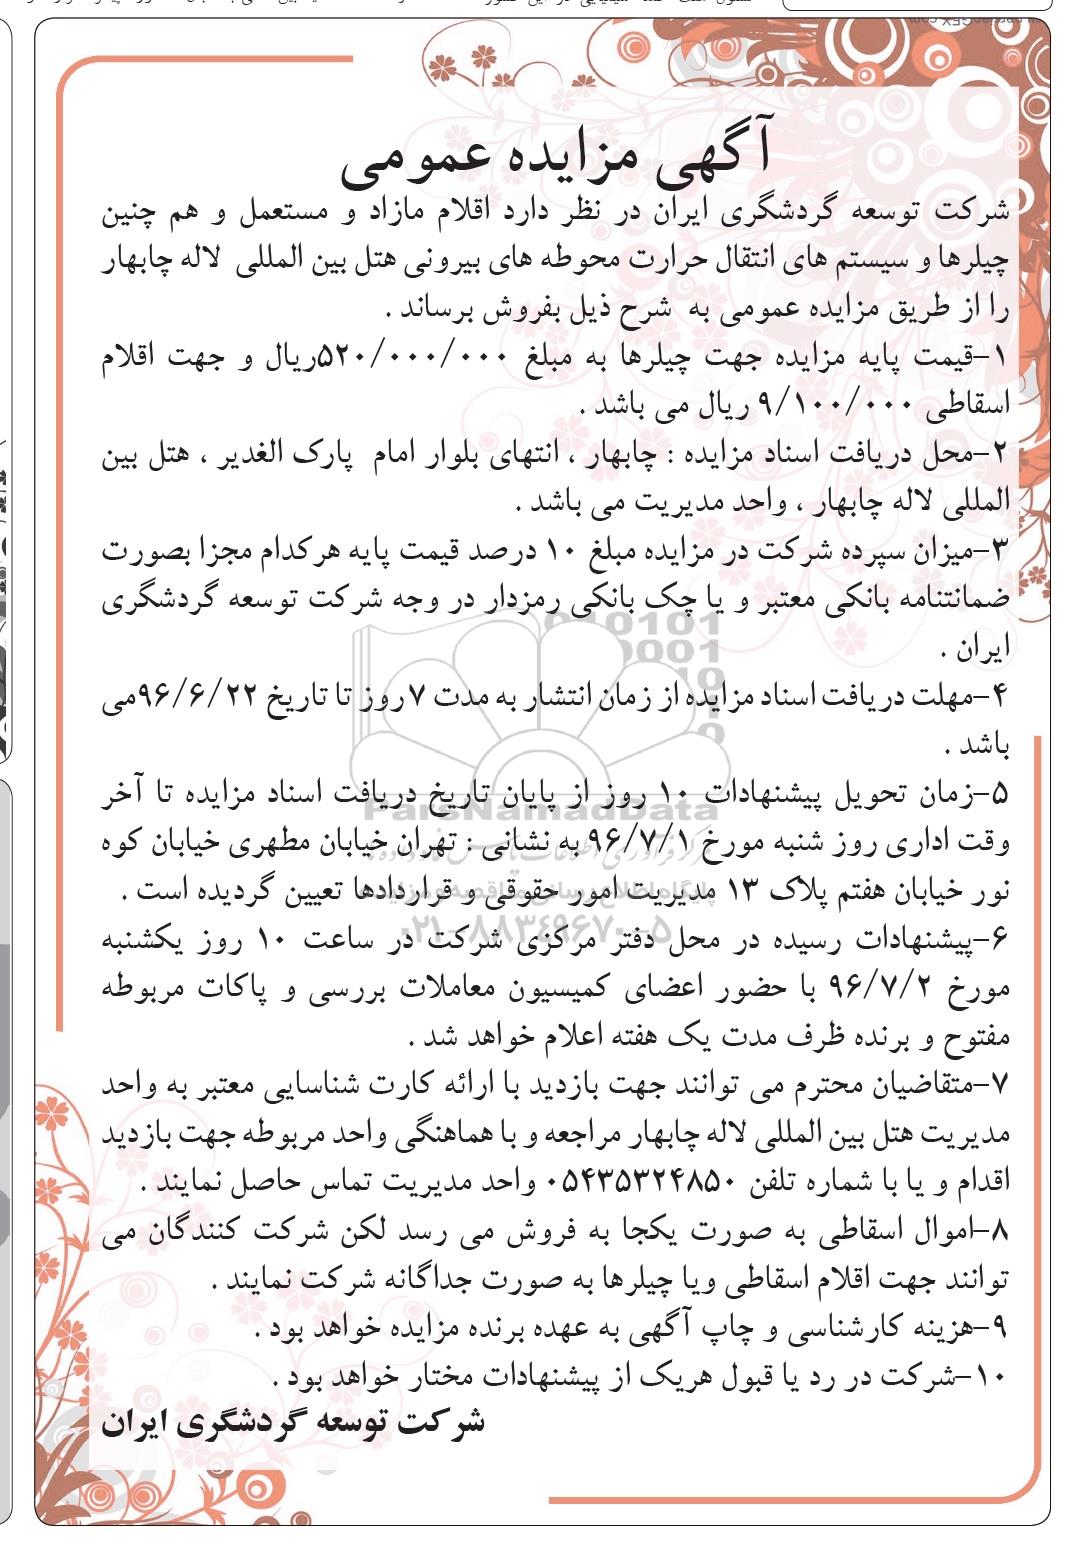 آگهی مزایده عمومی
شرکت توسعه گردشگری ایران در نظر دارد اقلام مازاد و مستعمل و هم چنین
چیلرها و سیستم های انتقال حرارت محوطه های بیرونی هتل بین المللی لاله چابهار
را از طریق مزایده عمومی به شرح ذیل بفروش برساند .
۱-قیمت پایه مزایده جهت چیلرها به مبلغ ۵۲۰/۰۰۰/۰۰۰ریال و جهت اقلام
اسقاطی ۹/۱۰۰/۰۰۰ ریال می باشد .
۲-محل دریافت اسناد مزایده : چابهار ، انتهای بلوار امام پارک الغدیر ، هتل بین
المللی لاله چابهار ، واحد مدیریت می باشد .
۳-میزان سپرده شرکت در مزایده مبلغ ۱۰ درصد قیمت پایه هرکدام مجزا بصورت
ضمانتنامه بانکی معتبر و یا چک بانکی رمزدار در وجه شرکت توسعه گردشگری
ایران .
۴-مهلت دریافت اسناد مزایده از زمان انتشار به مدت ۷روز تا تاریخ ۹۶/۶/۲۲می
باشد .
۵-زمان تحویل پیشنهادات ۱۰ روز از پایان تاریخ دریافت اسناد مزایده تا آخر
وقت اداری روز شنبه مورخ ۹۶/۷/۱ به نشانی : تهران خیابان مطهری خیابان کوه
نور خیابان هفتم پلاک ۱۳ مدیریت امور حقوقی و قراردادها تعیین گردیده است .
۶-پیشنهادات رسیده در محل دفتر مرکزی شرکت در ساعت ۱۰ روز یکشنبه
مورخ ۹۶/۷/۲ با حضور اعضای کمیسیون معاملات بررسی و پاکات مربوطه
مفتوح و برنده ظرف مدت یک هفته اعلام خواهد شد .
۷-متقاضیان محترم می توانند جهت بازدید با ارائه کارت شناسایی معتبر به واحد
مدیریت هتل بین المللی لاله چابهار مراجعه و با هماهنگی واحد مربوطه جهت بازدید
اقدام و یا با شماره تلفن ۰۵۴۳۵۳۲۴۸۵۰ واحد مدیریت تماس حاصل نمایند .
۸-اموال اسقاطی به صورت یکجا به فروش می رسد لکن شرکت کنندگان می
توانند جهت اقلام اسقاطی ویا چیلرها به صورت جداگانه شرکت نمایند .
۹-هزینه کارشناسی و چاپ آگهی به عهده برنده مزایده خواهد بود .
۱۰-شرکت در رد یا قبول هریک از پیشنهادات مختار خواهد بود .
شرکت توسعه گردشگری ایران
ParsNamadData
۰۲۱-۸۸۳۴۹۶۷۰-۵